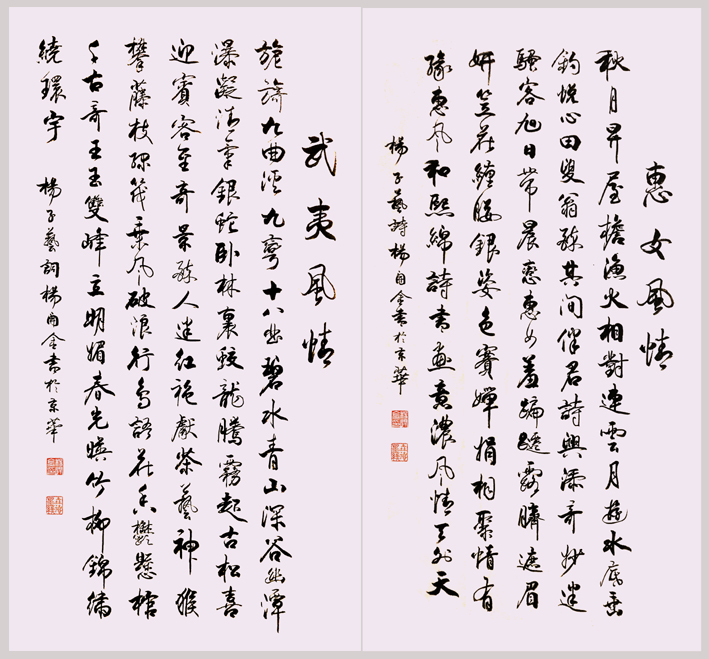 惠女風情
秋月昇屋檐漁火相對連雲月遊水底垂
釣悅心田叟翁孫其間伴君詩興添奇妙迷
騷客旭日常晨恋惠女羞蹒跚露臍遮眉
妍笠花纏腰銀姿色賽嬋娟相聚情有
緣惠風和熙綿詩書画意濃風情天外天
楊子藝詩楊自合書於京華
武夷風情
旖旎九曲溪九彎十八幽碧水青山深谷幽潭
瀑凝清銀蛇卧林裏蛟龍騰霧起古松喜
迎賓客至奇景旅人迷紅袍獻茶藝神猴
攀藤枝筏乘風破浪行鳥語花香鬱懸棺
千古奇王玉雙峰立明媚春光映竹柳錦繡
繞環宇 楊子藝詞楊自合書於京華